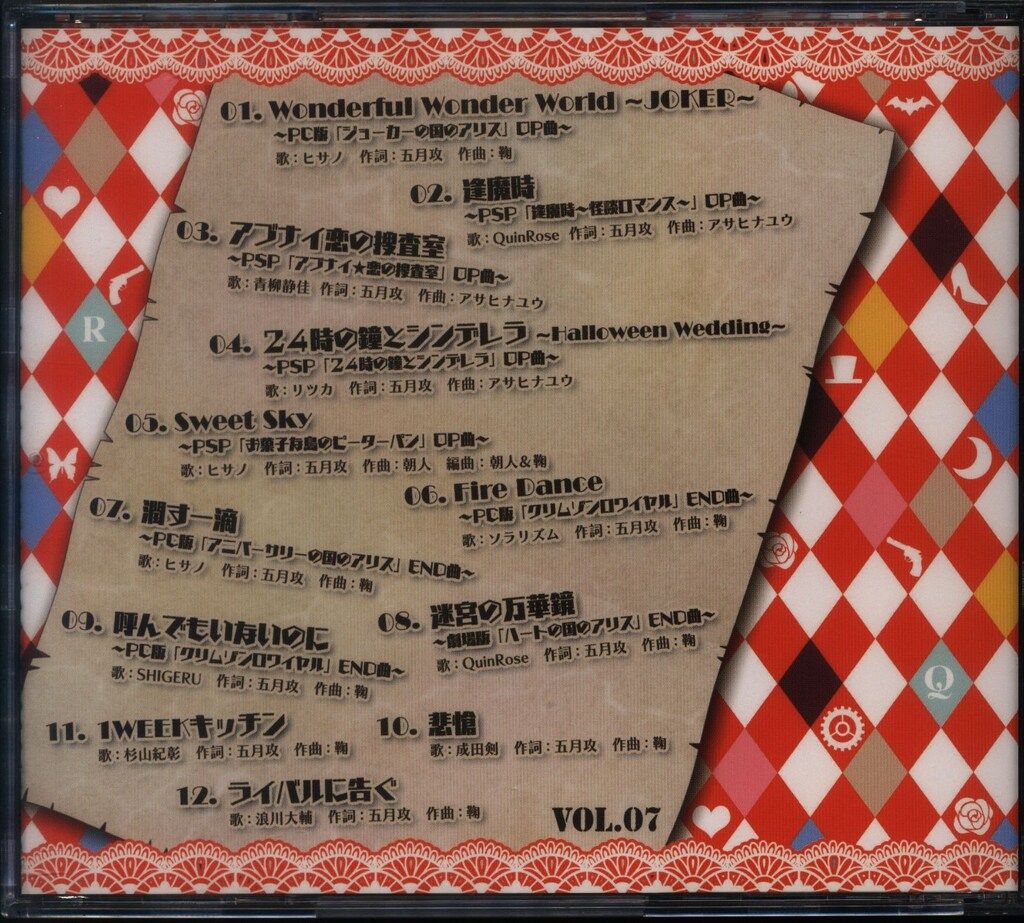 01. Wonderful Wonder World ~JOKER~
~PC版「ジョーカーの国のアリス」OP曲~
歌:ヒサノ 作詞:五月攻 作曲:鞠
02. 逢魔時
~PSP「逢魔時~怪談ロマンス~」OP曲~
歌:QuinRose 作詞:五月攻 作曲:アサヒナユウ
03. アブナイ恋の捜査室
~PSP「アブナイ★恋の捜査室」OP曲~
歌:青柳静佳 作詞:五月攻 作曲:アサヒナユウ
04. 24時の鐘とシンデレラ ~Halloween Wedding~
~PSP「24時の鐘とシンデレラ」OP曲~
歌:リツカ 作詞:五月攻 作曲:アサヒナユウ
05. Sweet Sky
~PSP「お菓子な島のピーターパン」OP曲~
歌:ヒサノ 作詞:五月攻 作曲:朝人 編曲:朝人&鞠
06. Fire Dance
~PC版「クリムゾンロワイヤル」END曲~
歌:ソラリズム 作詞:五月攻 作曲:鞠
07. 潤す一滴
~PC版「アニバーサリーの国のアリス」END曲~
歌:ヒサノ 作詞:五月攻 作曲:鞠
08. 迷宮の万華鏡
~劇場版「ハートの国のアリス」END曲~
歌:QuinRose 作詞:五月攻 作曲:鞠
09. 呼んでもいないのに
~PC版「クリムゾンロワイヤル」END曲~
歌:SHIGERU 作詞:五月攻 作曲:鞠
10. 悲愴
歌:成田剣 作詞:五月攻 作曲:鞠
11. 1WEEKキッチン
歌:杉山紀彰 作詞:五月攻 作曲:鞠
12. ライバルに告ぐ
歌:浪川大輔 作詞:五月攻 作曲:鞠
VOL.07
R
Q